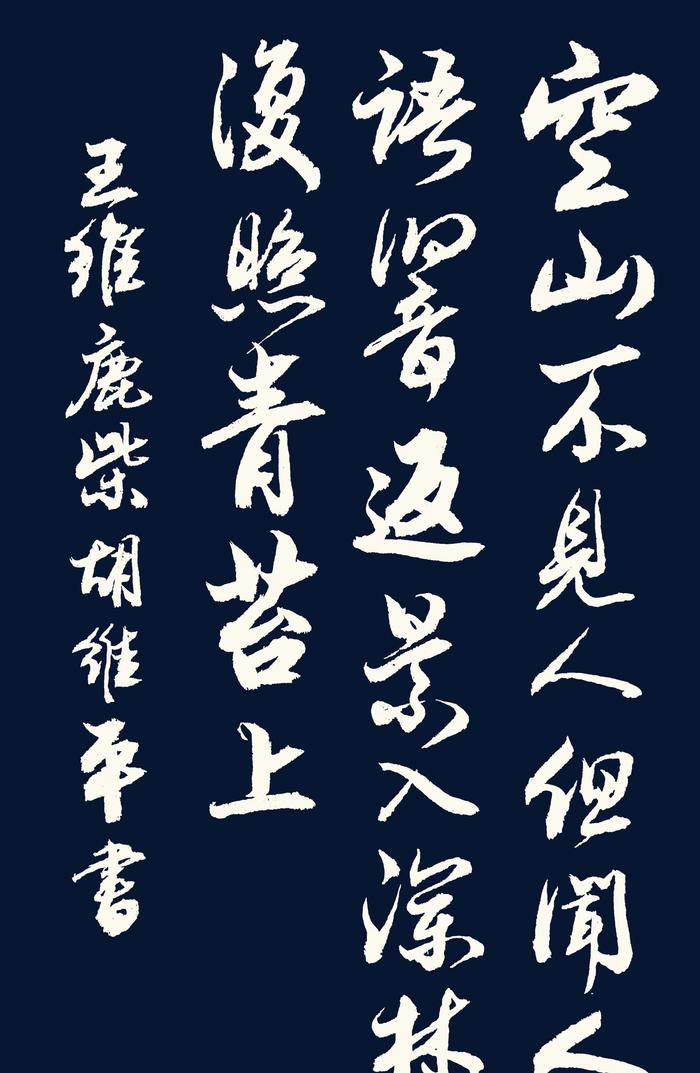 空山不見人但聞人
語響音返景入深林
復照青苔上
王維鹿柴胡維平書